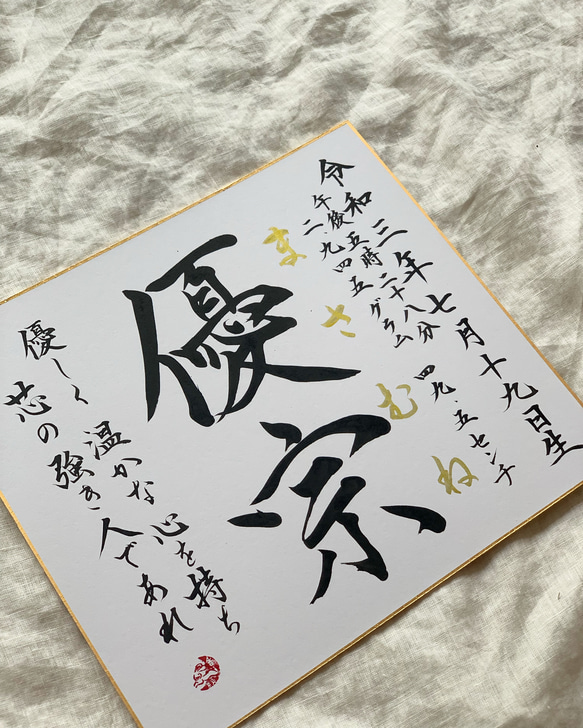 令和三年七月十九日生
午後五時二十八分
二.九四五グラム 四九.五センチ
まさむね
優宗
優しく温かな心を持ち
芯の強き人であれ